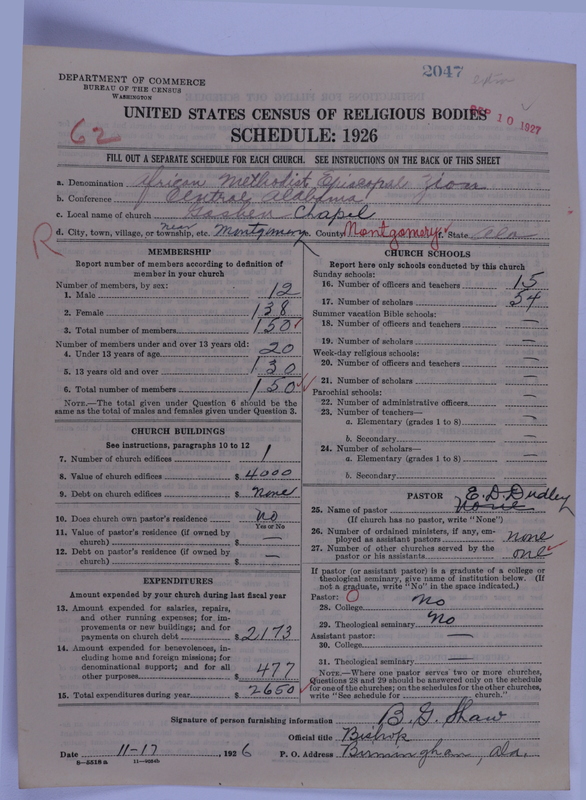 2047
DEPARTMENT OF COMMERCE
BUREAU OF THE CENSUS
WASHINGTON
UNITED STATES CENSUS OF RELIGIOUS BODIES
DEC 10 1927
62
SCHEDULE: 1926
FILL OUT A SEPARATE SCHEDULE FOR EACH CHURCH. SEE INSTRUCTIONS ON THE BACK OF THIS SHEET
a. Denomination African Methodist Episcopal Zion
b. Conference Central Alabama
c. Local name of church Chapel
d. City, town, village, or township, etc. near Montgomery e. County Montgomery f. State Ala
R
MEMBERSHIP
Report number of members according to definition of
member in your church
Number of members, by sex:
1. Male 12
2. Female 138
3. Total number of members 150
Number of members under and over 13 years old:
4. Under 13 years of age 20
5. 13 years old and over 130
6. Total number of members 150
NOTE.—The total given under Question 6 should be the
same as the total of males and females given under Question 3.
CHURCH BUILDINGS
See instructions, paragraphs 10 to 12
7. Number of church edifices 1
8. Value of church edifices $ 4000
9. Debt on church edifices $ None
10. Does church own pastor's residence No
Yes or No
11. Value of pastor's residence (if owned by
church) $ —
12. Debt on pastor's residence (if owned by
church) $ —
EXPENDITURES
Amount expended by your church during last fiscal year
13. Amount expended for salaries, repairs,
and other running expenses; for im-
provements or new buildings; and for
payments on church debt $ 2173
14. Amount expended for benevolences, in-
cluding home and foreign missions; for
denominational support; and for all
other purposes $ 477
15. Total expenditures during year $ 2650
CHURCH SCHOOLS
Report here only schools conducted by this church
Sunday schools:
16. Number of officers and teachers 15
17. Number of scholars 54
Summer vacation Bible schools:
18. Number of officers and teachers —
19. Number of scholars —
Week-day religious schools:
20. Number of officers and teachers —
21. Number of scholars —
Parochial schools:
22. Number of administrative officers —
23. Number of teachers—
a. Elementary (grades 1 to 8) —
b. Secondary —
24. Number of scholars—
a. Elementary (grades 1 to 8) —
b. Secondary
PASTOR
E. D. Dudley
25. Name of pastor None
(If church has no pastor, write "None")
26. Number of ordained ministers, if any, em-
ployed as assistant pastors none
27. Number of other churches served by the
pastor or his assistants one
If pastor (or assistant pastor) is a graduate of a college or
theological seminary, give name of institution below. (If
not a graduate, write "No" in the space indicated.)
Pastor: O
28. College No
29. Theological seminary No
Assistant pastor: —
30. College
31. Theological seminary —
NOTE.—Where one pastor serves two or more churches,
Questions 28 and 29 should be answered only on the schedule
for one of the churches; on the schedules for the other churches,
write "See schedule for church."
Signature of person furnishing information B. G. Shaw
Official title Bishop
Date 11-17, 1926 P. O. Address Birmingham, Ala.
8—5518a 11—9084b